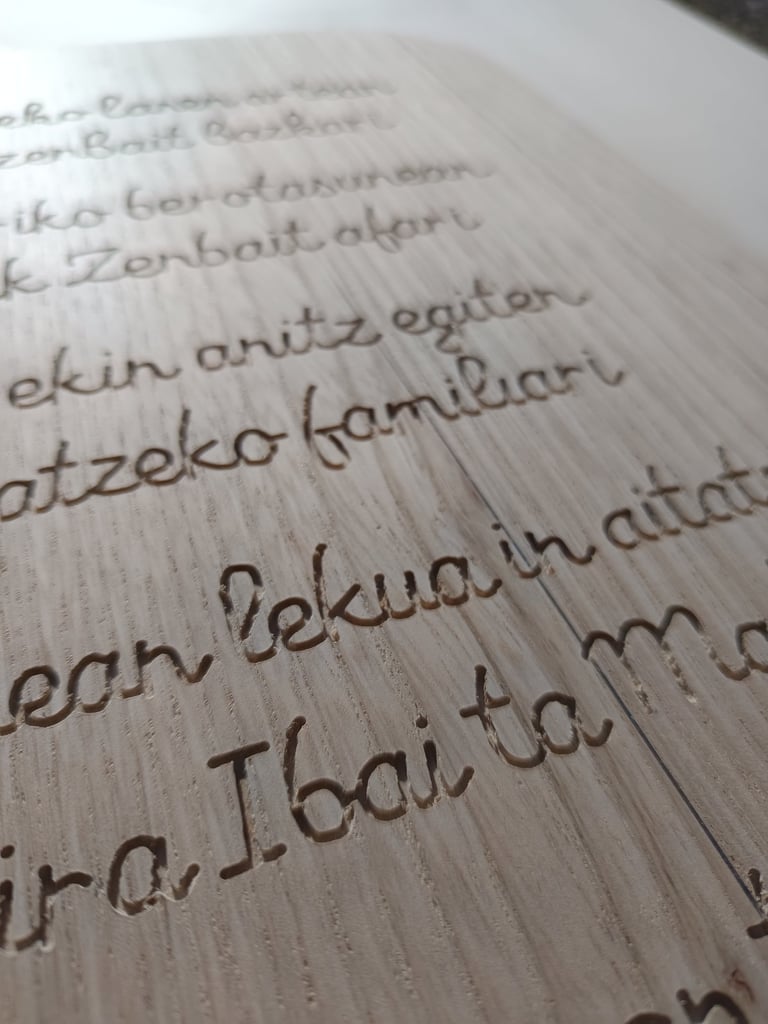 zenbait bazkari
berotasunean
k Zenbait afari
ekin anitz egiten
atzeko familiari
ean lekua in aitat
ira Ibai ta Ma